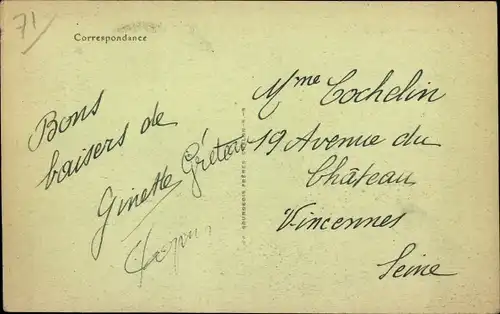 71
Correspondance
Bons
baisers de
Ginette
Mme Cochelin
19 Avenue du
Château
Vincennes
Seine
BOURGEOIS FRÈRES